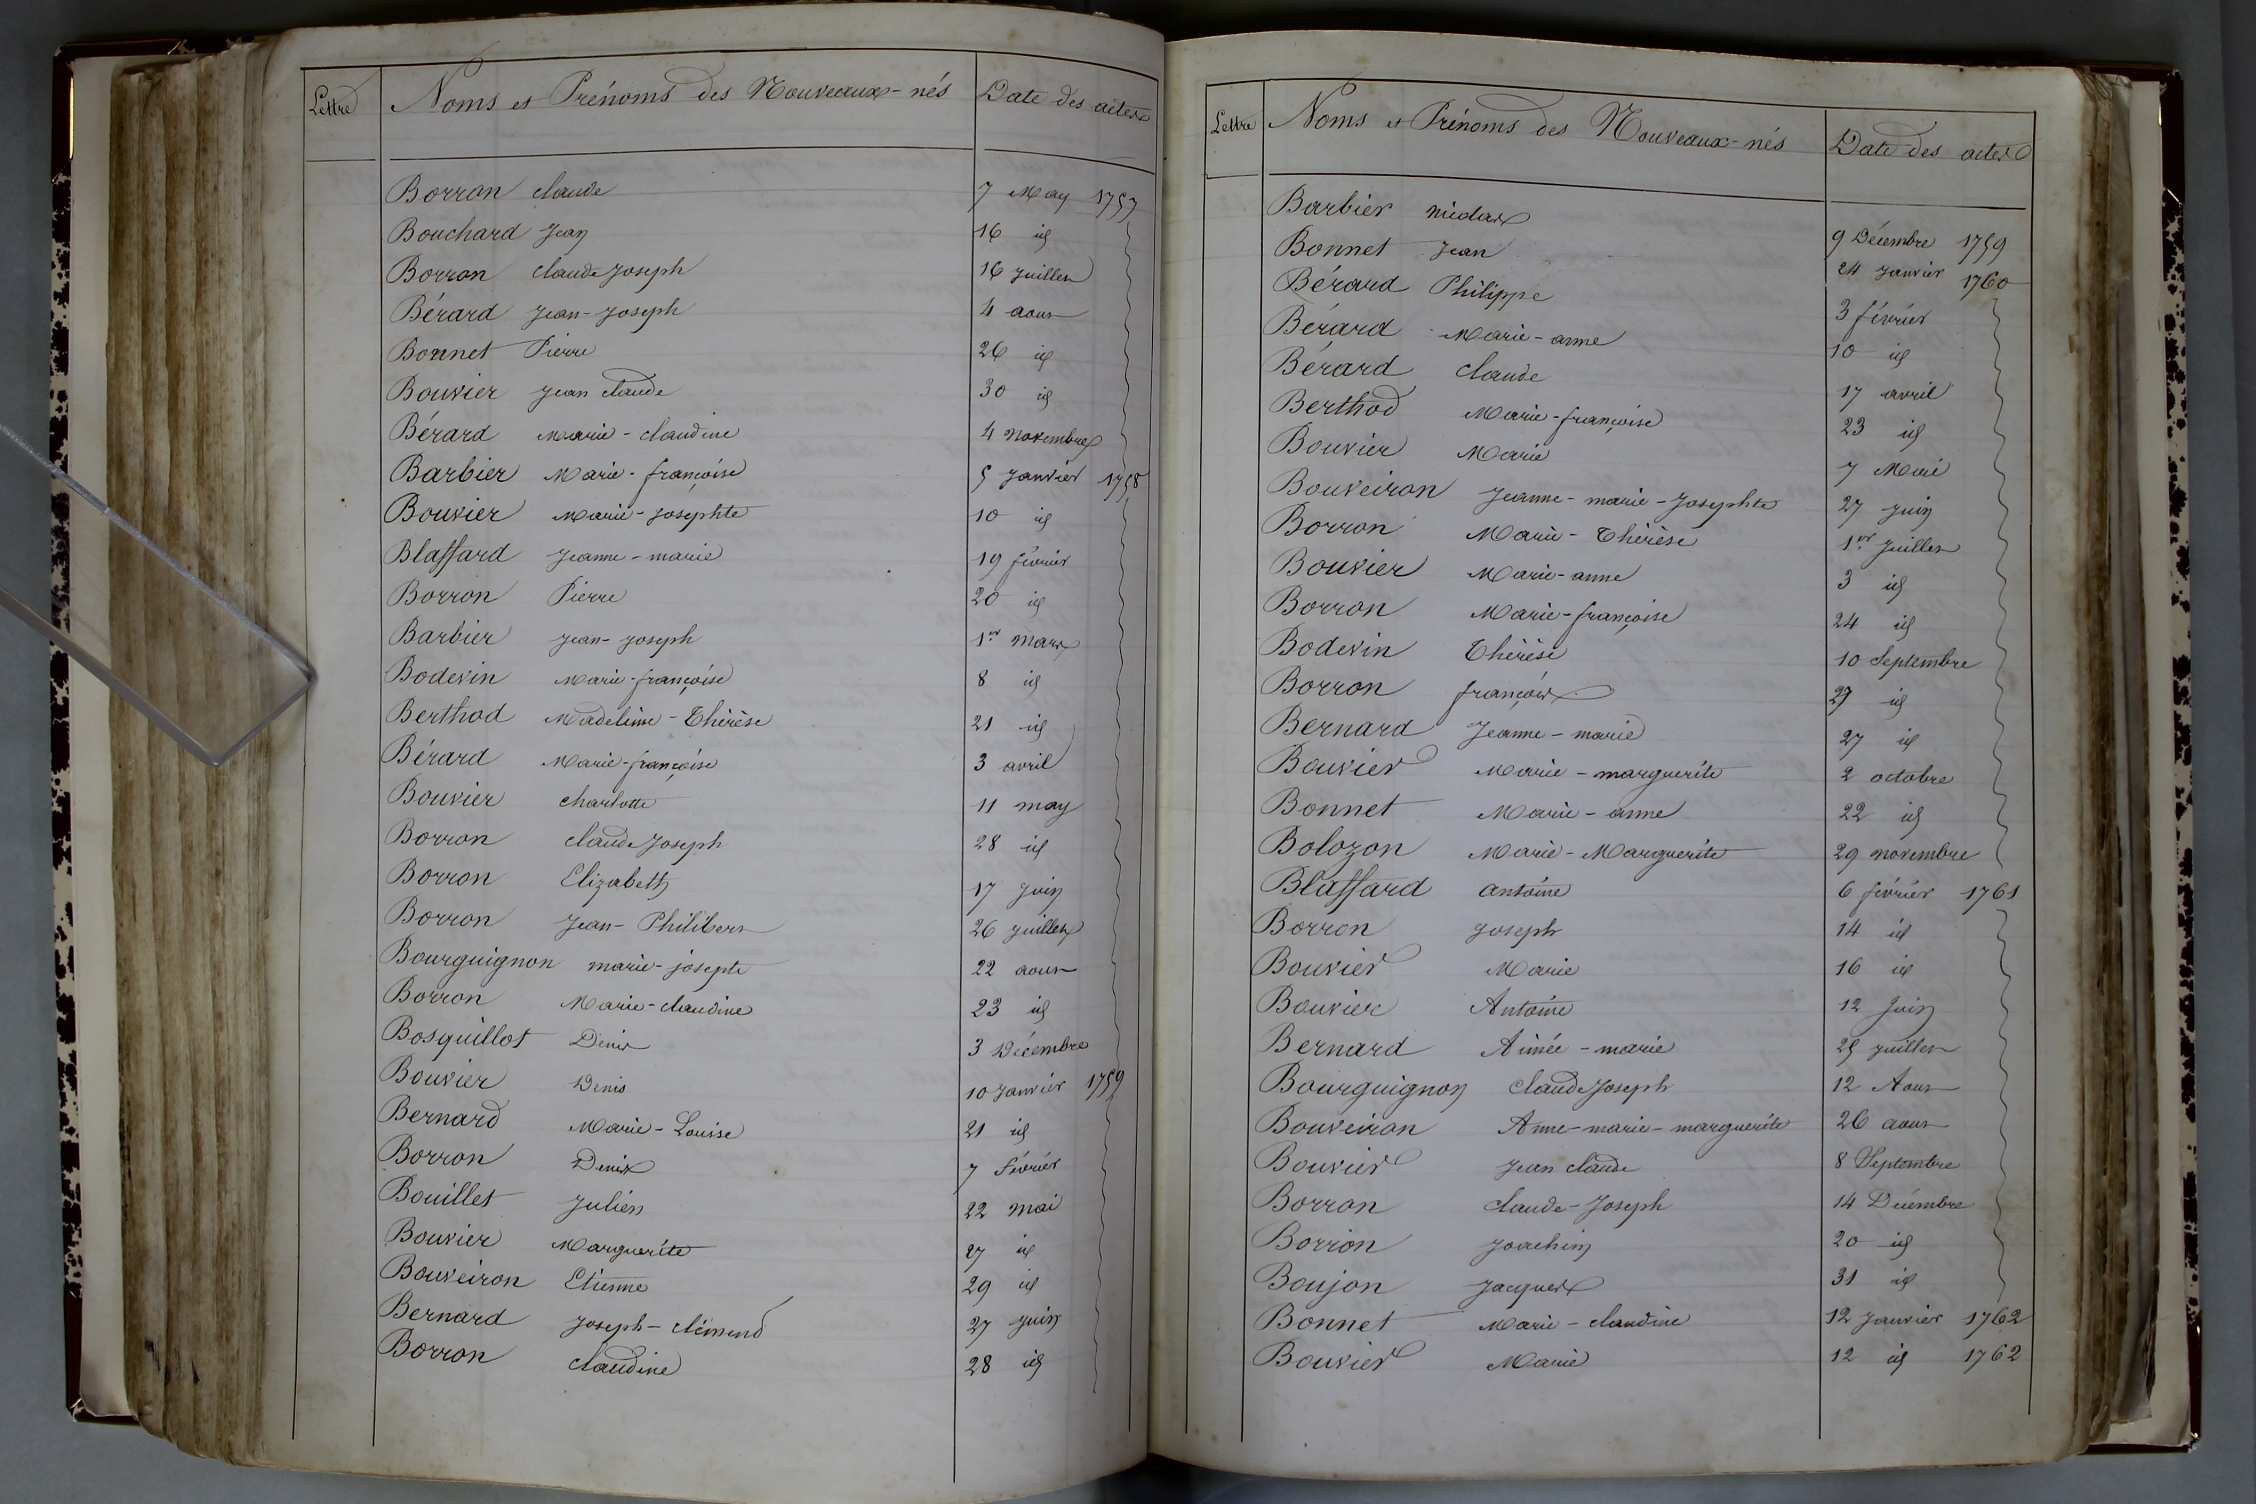 Lettre Noms et Prénoms des Nouveaux-nés Date des actes
Borron claude 7 May 1757
Bouchard Jean 16 id
Borron claude Joseph 16 juillet
Bérard Jean-Joseph 4 aout
Bonnet Pierre 26 id
Bouvier Jean claude 30 id
Bérard Marie-claudine 4 novembre
Barbier Marie-françoise 5 Janvier 1758
Bouvier Marie-Josephte 10 id
Blaffard Jeanne-marie 19 février
Borron Pierre 20 id
Barbier Jean-Joseph 1er mars
Bodevin Marie-françoise 8 id
Berthod Madeleine-Thérèse 21 id
Bérard Marie-françoise 3 avril
Bouvier charlotte 11 may
Borron claude Joseph 28 id
Borron Elizabeth 17 juin
Borron Jean-Philibert 26 juillet
Bourguignon marie-josephte 22 aout
Borron Marie-claudine 23 id
Bosquillot Denis 3 Décembre
Bouvier Denis 10 Janvier 1759
Bernard Marie-Louise 21 id
Borron Denis 7 février
Bouillet Julien 22 mai
Bouvier Marguerite 27 id
Bouveiron Etienne 29 id
Bernard Joseph-clémend 27 juin
Borron claudine 28 id
Lettre Noms et Prénoms des Nouveaux-nés Date des actes
Barbier nicolas 9 Décembre 1759
Bonnet Jean 24 Janvier 1760
Bérard Philippe 3 février
Bérard Marie-anne 10 id
Bérard claude 17 avril
Berthod Marie-françoise 23 id
Bouvier Marie 7 Mai
Bouveiron Jeanne-marie-Josephte 27 juin
Borron Marie-Thérèse 1er juillet
Bouvier Marie-anne 3 id
Borron Marie-françoise 24 id
Bodevin Thérèse 10 Septembre
Borron françois 27 id
Bernard Jeanne-marie 27 id
Bouvier Marie-marguerite 2 octobre
Bonnet Marie-anne 22 id
Bolozon Marie-Marguerite 29 novembre
Blaffard antoine 6 février 1761
Borron Joseph 14 id
Bouvier Marie 16 id
Bouvier Antoine 12 Juin
Bernard Aimée-marie 25 juillet
Bourguignon claude Joseph 12 Aout
Bouveiron Anne-marie-marguerite 26 aout
Bouvier Jean claude 8 Septembre
Borron claude-Joseph 14 Décembre
Borron Joachim 20 id
Boujon Jacques 31 id
Bonnet Marie-claudine 12 Janvier 1762
Bouvier Marie 12 id 1762